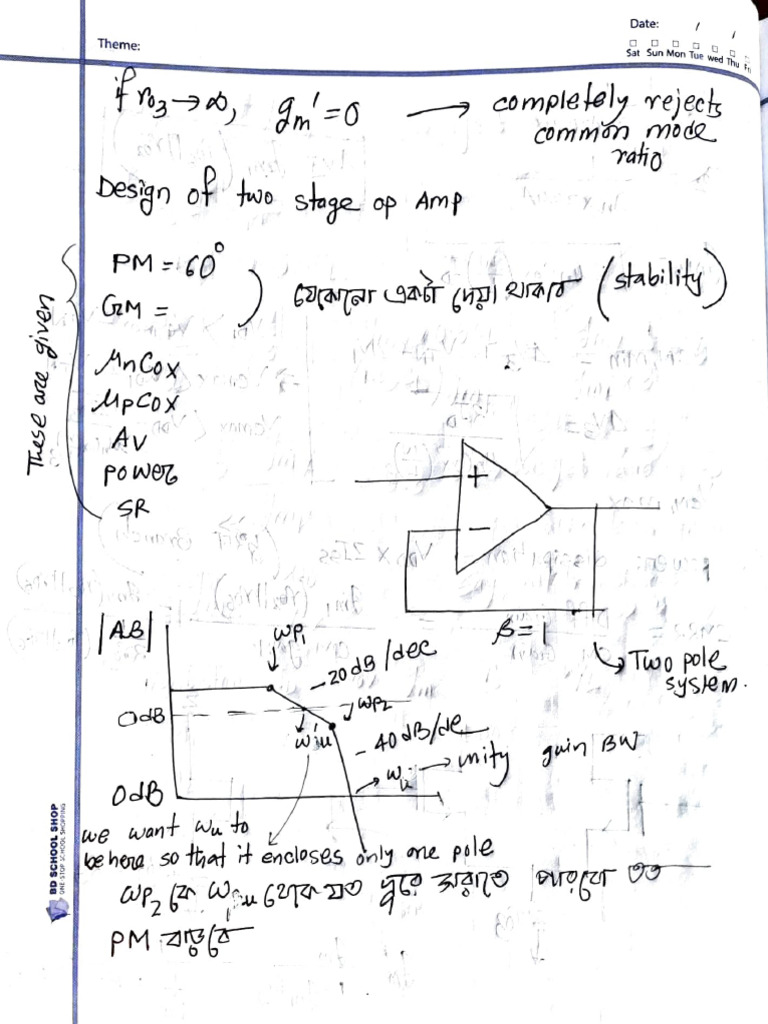 Date: / /
Theme:
Sat Sun Mon Tue wed Thu Fri
if ro3 → ∞, gm' = 0 → completely rejects
common mode
ratio
Design of two stage op Amp
These are given
PM = 60°
GM =
যেকোনো একটা দেয়া থাকবে (stability)
μnCox
μpCox
AV
power
SR
+
−
β = 1
Two pole
system.
|AB|
ωp1
-20dB/dec
0dB
ωp2
ω'u
-40dB/de
ωu → unity gain BW
0dB
we want ωu to
be here so that it encloses only one pole
ωp2 কে ωu থেকে যত দূরে সরাতে পারবো তত
PM বাড়বে
BD SCHOOL SHOP
ONE-STOP SCHOOL SHOPPING